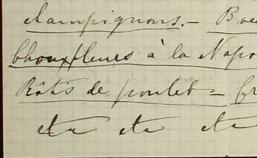 champignons. - Boe
Chouxfleurs à la Napo
Rôtis de poulet = fr
etc etc etc